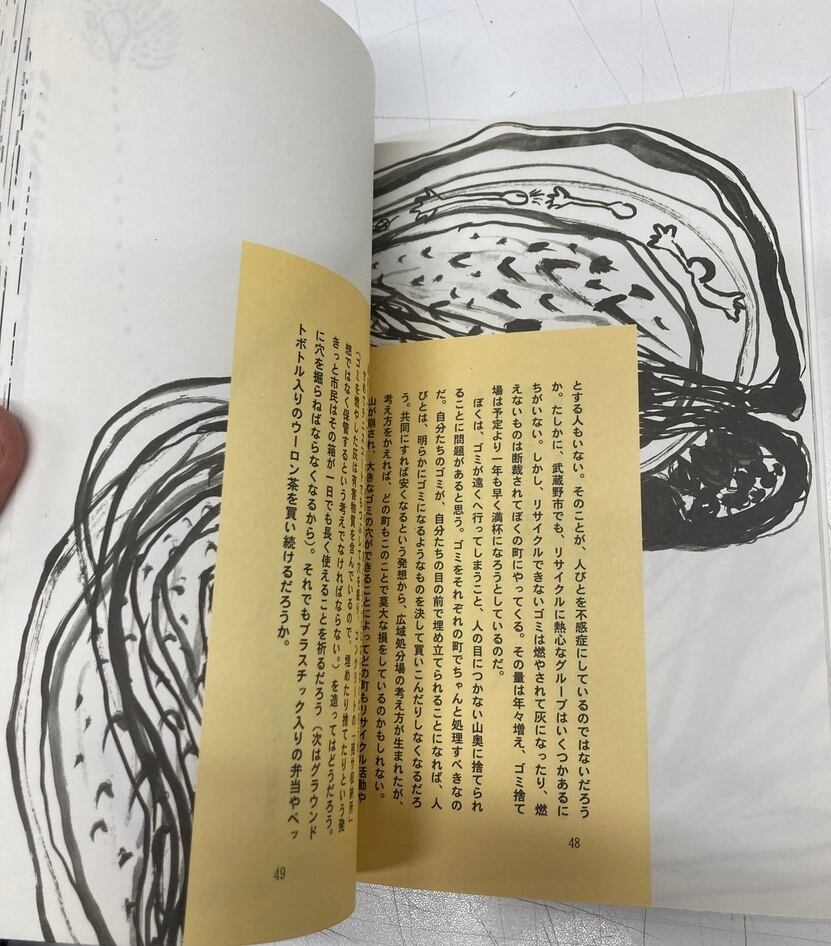 とする人もいない。そのことが、人びとを不感症にしているのではないだろう
か。たしかに、武蔵野市でも、リサイクルに熱心なグループはいくつかあるに
ちがいない。しかし、リサイクルできないゴミは燃やされて灰になったり、燃
えないものは断裁されてぼくの町にやってくる。その量は年々増え、ゴミ捨て
場は予定より一年も早く満杯になろうとしているのだ。
ぼくは、ゴミが遠くへ行ってしまうこと、人の目につかない山奥に捨てられ
ることに問題があると思う。ゴミをそれぞれの町でちゃんと処理すべきなの
だ。自分たちのゴミが、自分たちの目の前で埋め立てられることになれば、人
びとは、明らかにゴミになるようなものを決して買いこんだりしなくなるだろ
う。共同にすれば安くなるという発想から、広域処分場の考え方が生まれたが、
考え方をかえれば、どの町もこのことで莫大な損をしているのかもしれない。
山が崩され、大きなゴミの穴ができることによってどの町もリサイクル活動や
48
(ゴミを燃やした灰は有害物質を含んでいるので、埋めたり捨てたりという発
想ではなく保管するという考えでなければならない。)を造ってはどうだろう。
きっと市民はその箱が一日でも長く使えることを祈るだろう(次はグラウンド
に穴を掘らねばならなくなるから)。それでもプラスチック入りの弁当やペッ
トボトル入りのウーロン茶を買い続けるだろうか。
49